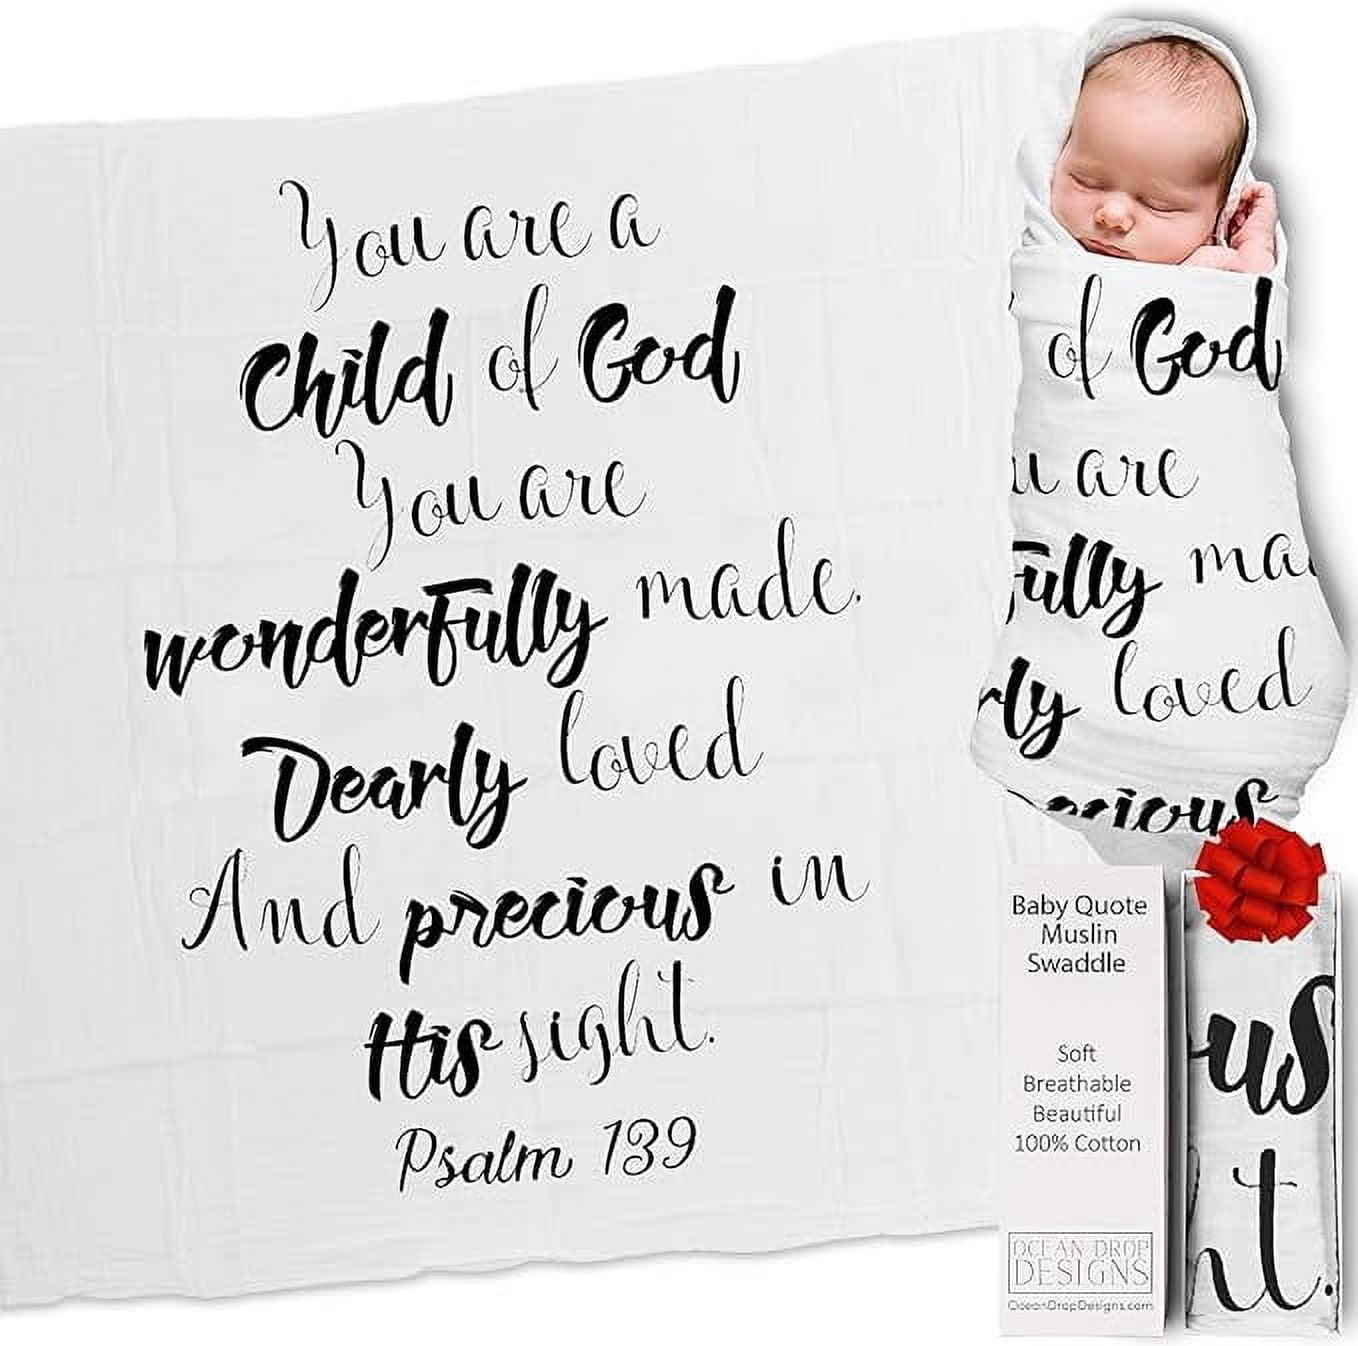 You are a
Child of God
You are
wonderfully made.
Dearly loved
And precious in
His sight.
Psalm 139
of God
u are
fully ma
rly loved
ecious
Baby Quote
Muslin
Swaddle
Soft
Breathable
Beautiful
100% Cotton
OCEAN DROP
DESIGNS
OceanDropDesigns.com
us
t.